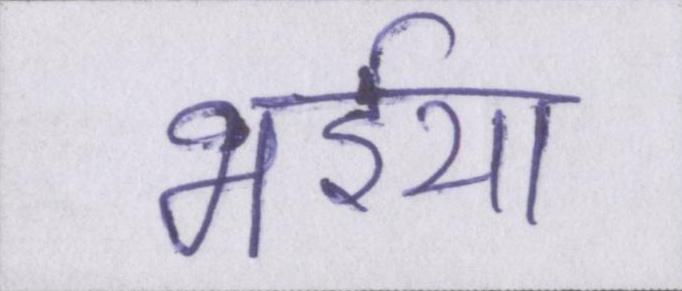 भईया